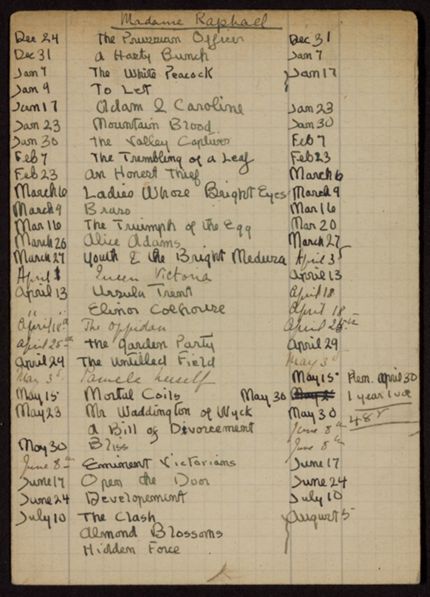 Madame Raphael
Dec 24 The Prussian Officer Dec 31
Dec 31 A Hasty Bunch Jan 7
Jan 7 The White Peacock Jan 17
Jan 9 To Let
Jan 17 Adam & Caroline Jan 23
Jan 23 Mountain Blood Jan 30
Jan 30 The Valley Feb 7
Feb 7 The Trembling of a Leaf Feb 23
Feb 23 An Honest Thief March 6
March 6 Ladies Whose Bright Eyes March 9
March 9 Mar 16
Mar 16 The Triumph of the Egg Mar 20
March 20 Alice Adams March 27
March 27 Youth & the Bright Medusa April 3
April Queen Victoria April 13
April 13 Ursula Trent April 18
" " Elinor Colhouse April 18
April 18th The Oppidan April 25th
April 25th The Garden Party April 29
April 29 The Untilled Field May 3d
May 3d Pamela herself May 15 Rem. April 30
May 15 Mortal Coils May 30 1 year 1 vol
May 23 Mr Waddington of Wyck May 30 48 F
A Bill of Divorcement June 8th
May 30 Bliss June 8th
June 8th Eminent Victorians June 17
June 17 Open the Door June 24
June 24 Developement July 10
July 10 The Clash August 5
Almond Blossoms
Hidden Force